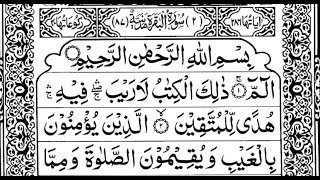 اٰیَاتُهَا ٢٨٦ (٢) سُوْرَةُ الْبَقَرَةِ مَدَنِیَّةٌ (٨٧) رُكُوْعَاتُهَا
بِسْمِ اللهِ الرَّحْمٰنِ الرَّحِیْمِ
الٓمّٓ ۚ﴿١﴾ ذٰلِكَ الْكِتٰبُ لَا رَیْبَ ۛۚ فِیْهِ ۛۚ
هُدًی لِّلْمُتَّقِیْنَ ۙ﴿٢﴾ الَّذِیْنَ یُؤْمِنُوْنَ
بِالْغَیْبِ وَ یُقِیْمُوْنَ الصَّلٰوةَ وَ مِمَّا